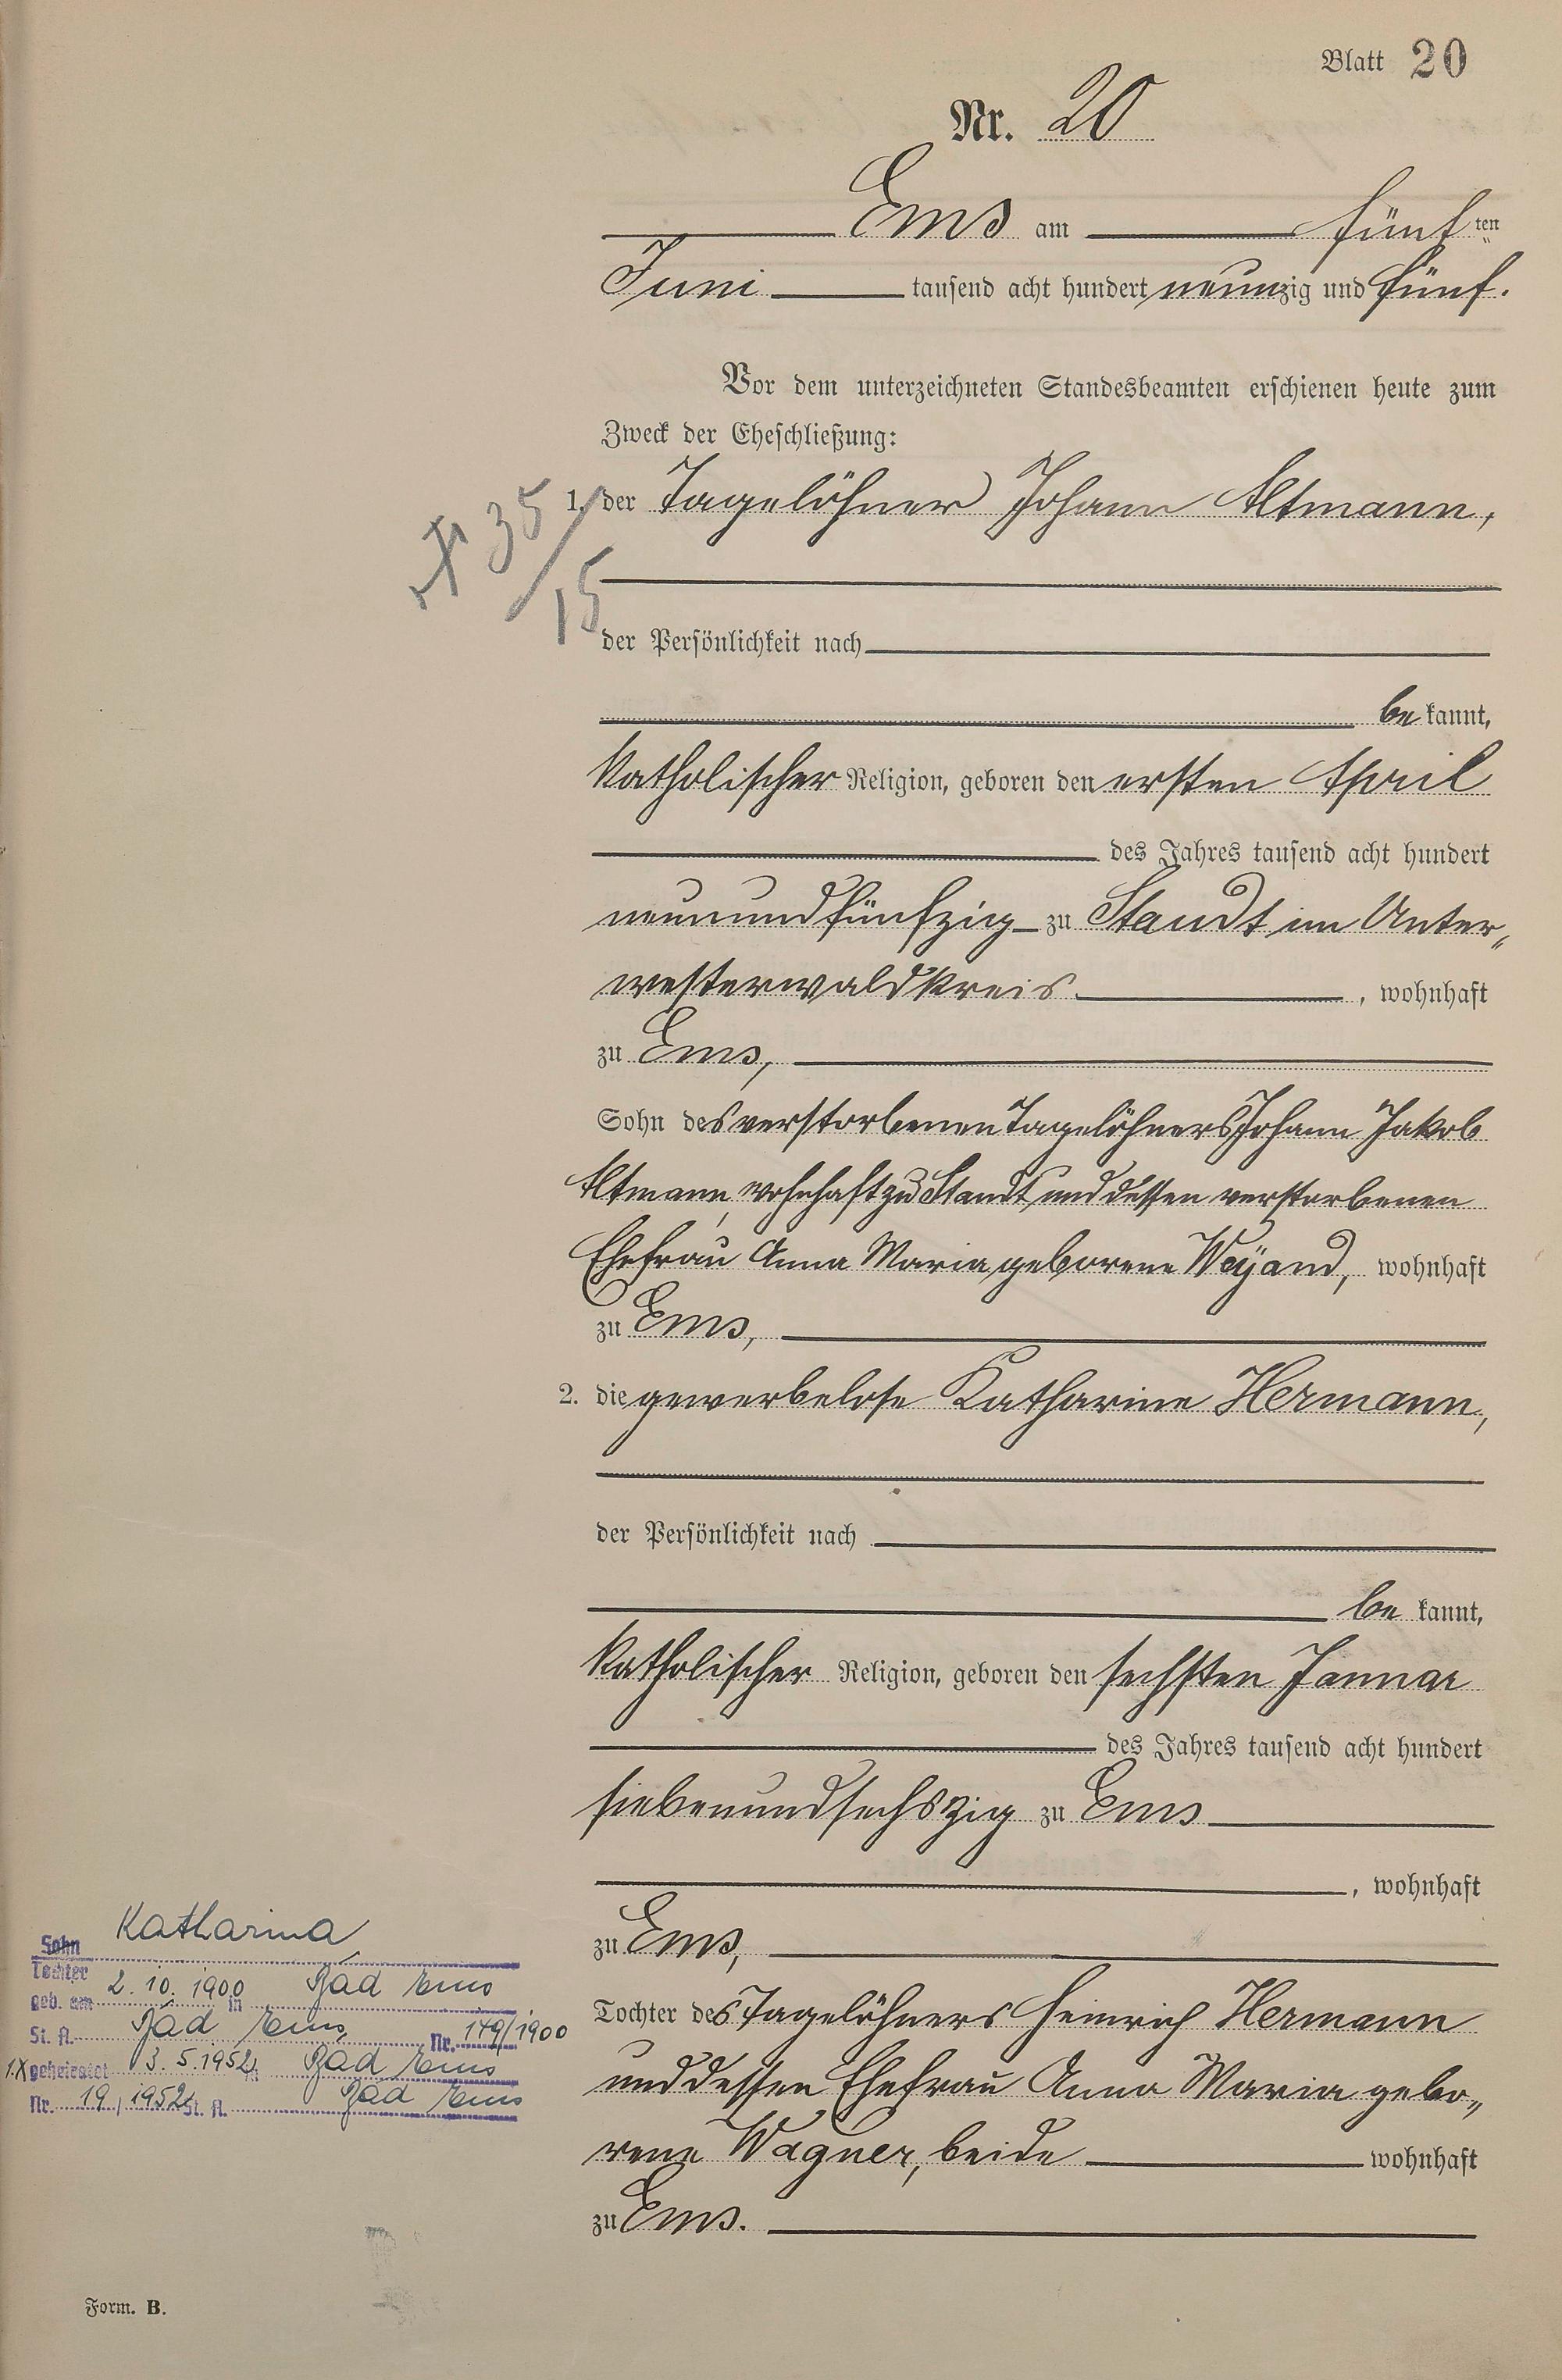 Blatt 20
Nr. 20
Ems am fünften
Juni tausend acht hundert neunzig und fünf.
Vor dem unterzeichneten Standesbeamten erschienen heute zum
Zweck der Eheschließung:
1. der Tagelöhner Johann Altmann,
35/15
der Persönlichkeit nach
bekannt,
katholischer Religion, geboren den ersten April
des Jahres tausend acht hundert
neunundfünfzig zu Staudt im Unter„
westerwaldkreis , wohnhaft
zu Ems,
Sohn des verstorbenen Tagelöhners Johann Jakob
Altmann, wohnhaft zu Staudt und dessen verstorbenen
Ehefrau Anna Maria geborene Weÿand, wohnhaft
zu Ems,
2. die gewerbelose Katharine Hermann,
der Persönlichkeit nach
be kannt,
katholischer Religion, geboren den sechsten Januar
des Jahres tausend acht hundert
siebenundsechszig zu Ems
, wohnhaft
zu Ems,
Tochter des Tagelöhners Heinrich Hermann
und dessen Ehefrau Anna Maria gebo„
rene Wagner, beide wohnhaft
zu Ems.
Katharina
Sohn
Tochter
geb. am 2. 10. 1900 in Bad Ems
St. A. Bad Ems, Nr. 149/1900
1.X geheiratet 3. 5. 1952 in Bad Ems
Nr. 19/1952 St. A. Bad Ems
Form. B.